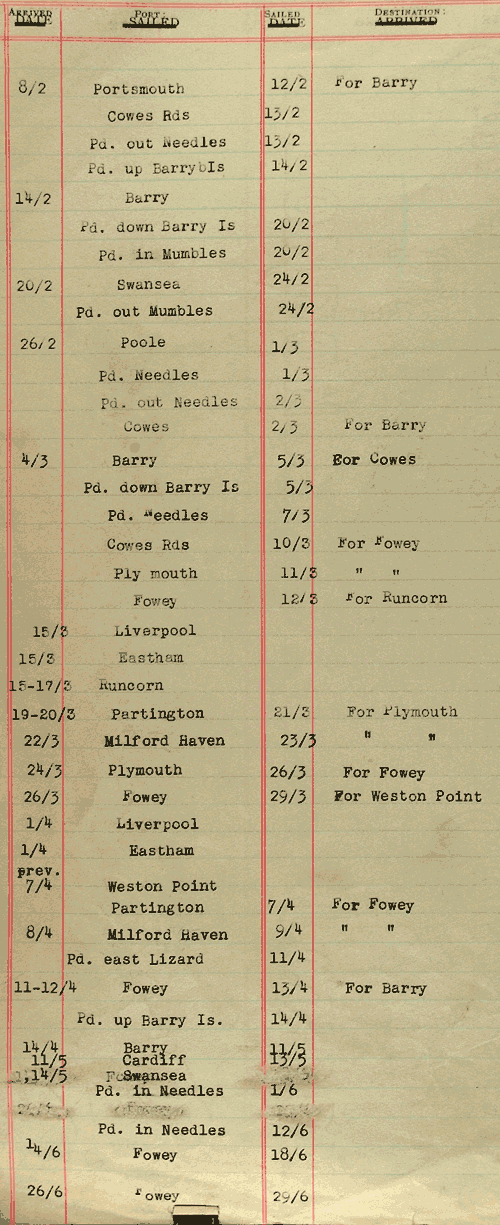 ARRIVED DATE PORT: SAILED SAILED DATE DESTINATION: ARRIVED
8/2 Portsmouth 12/2 For Barry
Cowes Rds 13/2
Pd. out Needles 13/2
Pd. up BarrybIs 14/2
14/2 Barry
Pd. down Barry Is 20/2
Pd. in Mumbles 20/2
20/2 Swansea 24/2
Pd. out Mumbles 24/2
26/2 Poole 1/3
Pd. Needles 1/3
Pd. out Needles 2/3
Cowes 2/3 For Barry
4/3 Barry 5/3 For Cowes
Pd. down Barry Is 5/3
Pd. Needles 7/3
Cowes Rds 10/3 For Fowey
Ply mouth 11/3 " "
Fowey 12/3 For Runcorn
15/3 Liverpool
15/3 Eastham
15-17/3 Runcorn
19-20/3 Partington 21/3 For Plymouth
22/3 Milford Haven 23/3 " "
24/3 Plymouth 26/3 For Fowey
26/3 Fowey 29/3 For Weston Point
1/4 Liverpool
1/4 Eastham
prev.
7/4 Weston Point
Partington 7/4 For Fowey
8/4 Milford Haven 9/4 " "
Pd. east Lizard 11/4
11-12/4 Fowey 13/4 For Barry
Pd. up Barry Is. 14/4
14/4 Barry 11/5
11/5 Cardiff 13/5
14/5 Swansea
Pd. in Needles 1/6
Pd. in Needles 12/6
14/6 Fowey 18/6
26/6 Fowey 29/6